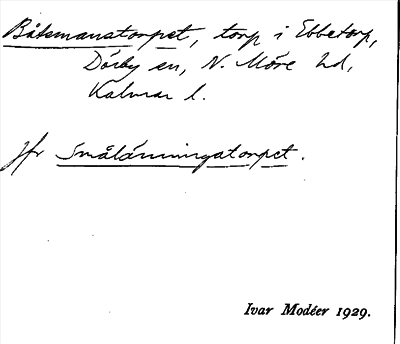 Båtsmanstorpet, torp i Ebbetorp,
Dörby sn, N. Möre hd,
Kalmar l.
Jfr Smålänningatorpet.
Ivar Modéer 1929.